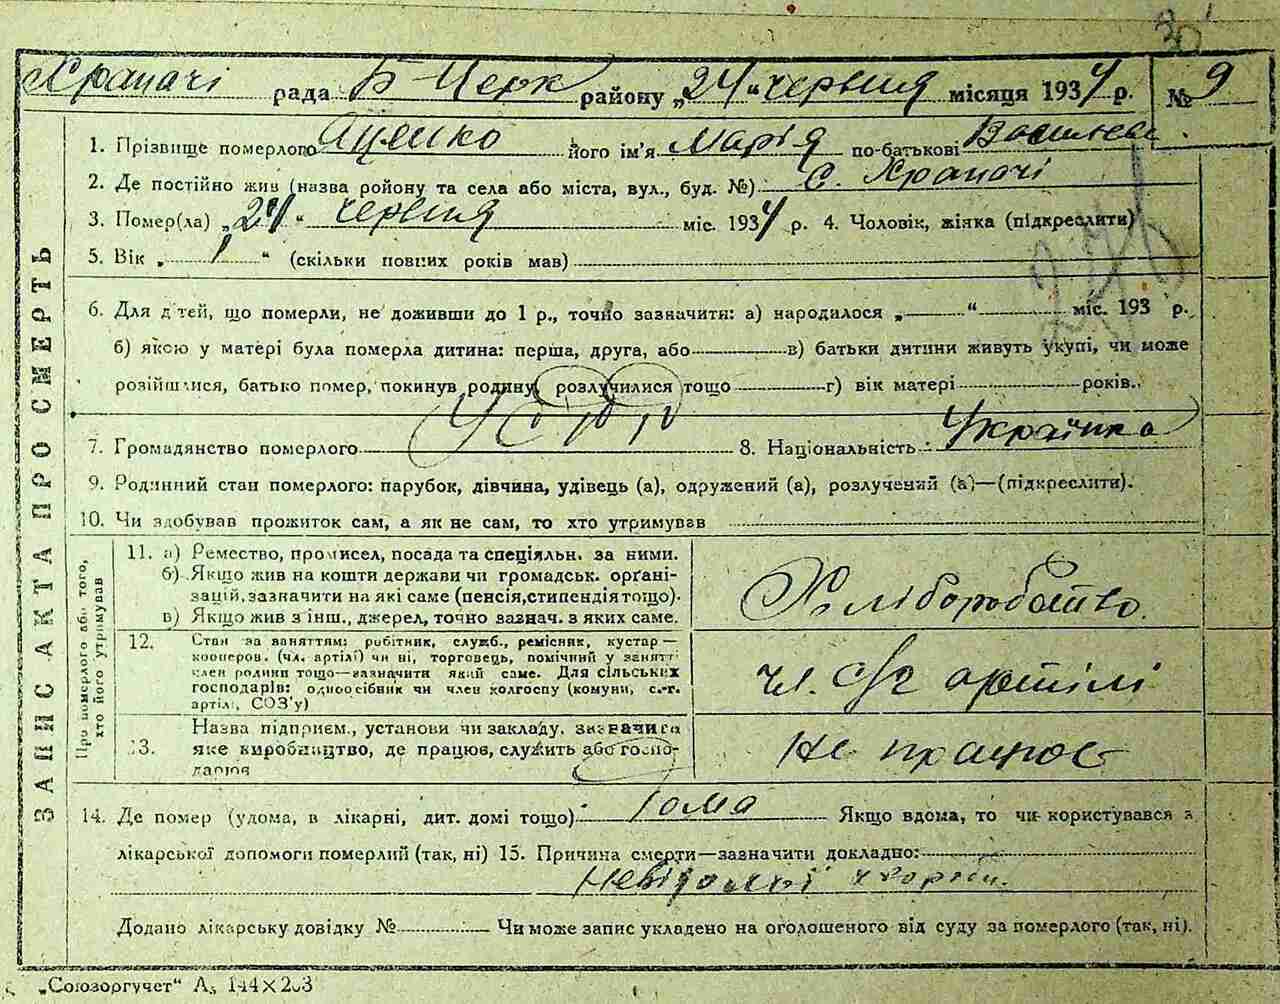 30
Храпачі рада Б-Черк району „24“ червня місяця 1934 р. № 9
1. Прізвище померлого Яценко його ім'я Марія по-батькові
2. Де постійно жив (назва ройону та села або міста, вул., буд. №) С. Храпачі
3. Помер(ла) „24“ червня міс. 1934 р. 4. Чоловік, жіяка (підкреслити)
5. Вік „ 1 “ (скільки повних років мав)
276
6. Для дітей, що померли, не доживши до 1 р., точно зазначити: а) народилося „ “ міс. 193 р.
б) якою у матері була померла дитина: перша, друга, або в) батьки дитини живуть укупі, чи може
розійшлися, батько помер, покинув родину, розлучилися тощо г) вік матері років.
7. Громадянство померлого УСРР 8. Національність: Українка
9. Родинний стан померлого: парубок, дівчина, удівець (а), одружений (а), розлучений (а)—(підкреслити).
10. Чи здобував прожиток сам, а як не сам, то хто утримував
ЗАПИС АКТА ПРО СМЕРТЬ
Про померлого або того,
хто його утримував
11. а) Ремество, промисел, посада та спеціяльн. за ними.
б) Якщо жив на кошти держави чи громадськ. орґані-
зацій, зазначити на які саме (пенсія, стипендія тощо).
в) Якщо жив з інш., джерел, точно зазнач. з яких саме.
Хліборобство
12. Стан за заняттям: робітник, служб., ремісник, кустар—
кооперов. (чл. артілі) чи ні, торговець, помічний у занятті
член родини тощо—зазначити який саме. Для сільських
господарів: одноосібник чи член колгоспу (комуни, с.-г.
артілі, СОЗ'у)
чл. с/г артілі
13. Назва підприєм., установи чи закладу, зазначити
яке виробництво, де працює, служить або госпо-
дарює
не працює
14. Де помер (удома, в лікарні, дит. домі тощо) Дома Якщо вдома, то чи користувався з
лікарської допомоги померлий (так, ні) 15. Причина смерти—зазначити докладно:
Невідомої
Додано лікарську довідку № Чи може запис укладено на оголошеного від суду за померлого (так, ні).
„Союзоргучет“ А₅ 144×203